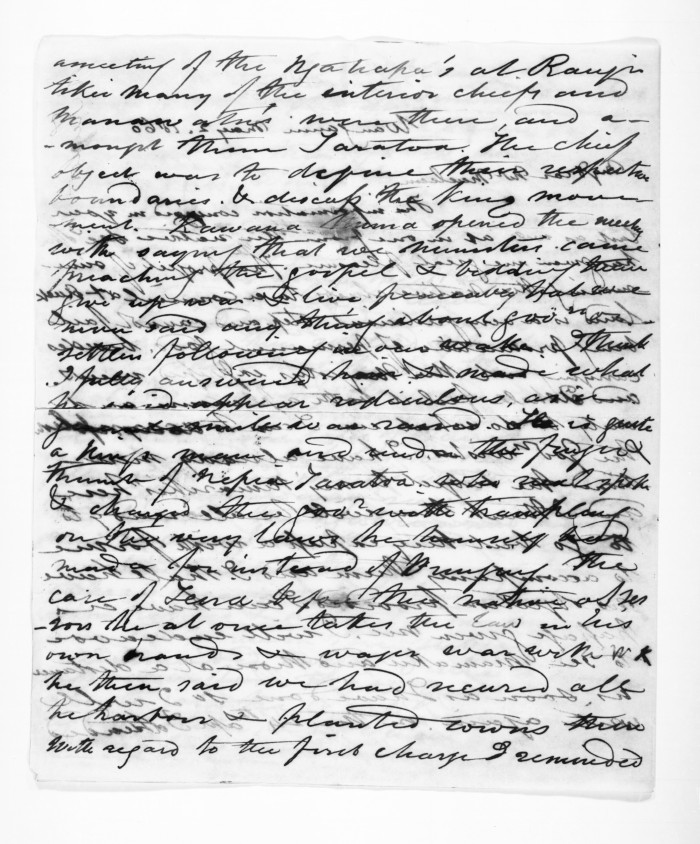 a meeting of the Ngatiapa's at Rangi
tikei many of the interior chiefs and
were there, and a-
-mongst them Taratoa. The chief
object was to define their respective
boundaries & discuss the King move
ment. Kawana Hunia opened the meeting
with saying that we ministers came
preaching the gospel & bidding them
give up war &
never said any thing about govr. &
settlers following in our wake. I think
I fully answered him & made what
he said appear ridiculous as a
general smile was raised. He is quite
a Kings man and under the finger &
thumb of Nepia Taratoa who next spoke
& charged the govr. with trampling
on the very laws he himself had
made for instead of bringing the
case of before the native asses
-sors he at once takes the law in his
own hands & wages war with W K
he then said we had secured all
he harbors & planted towns there
With regard to the first charge I reminded